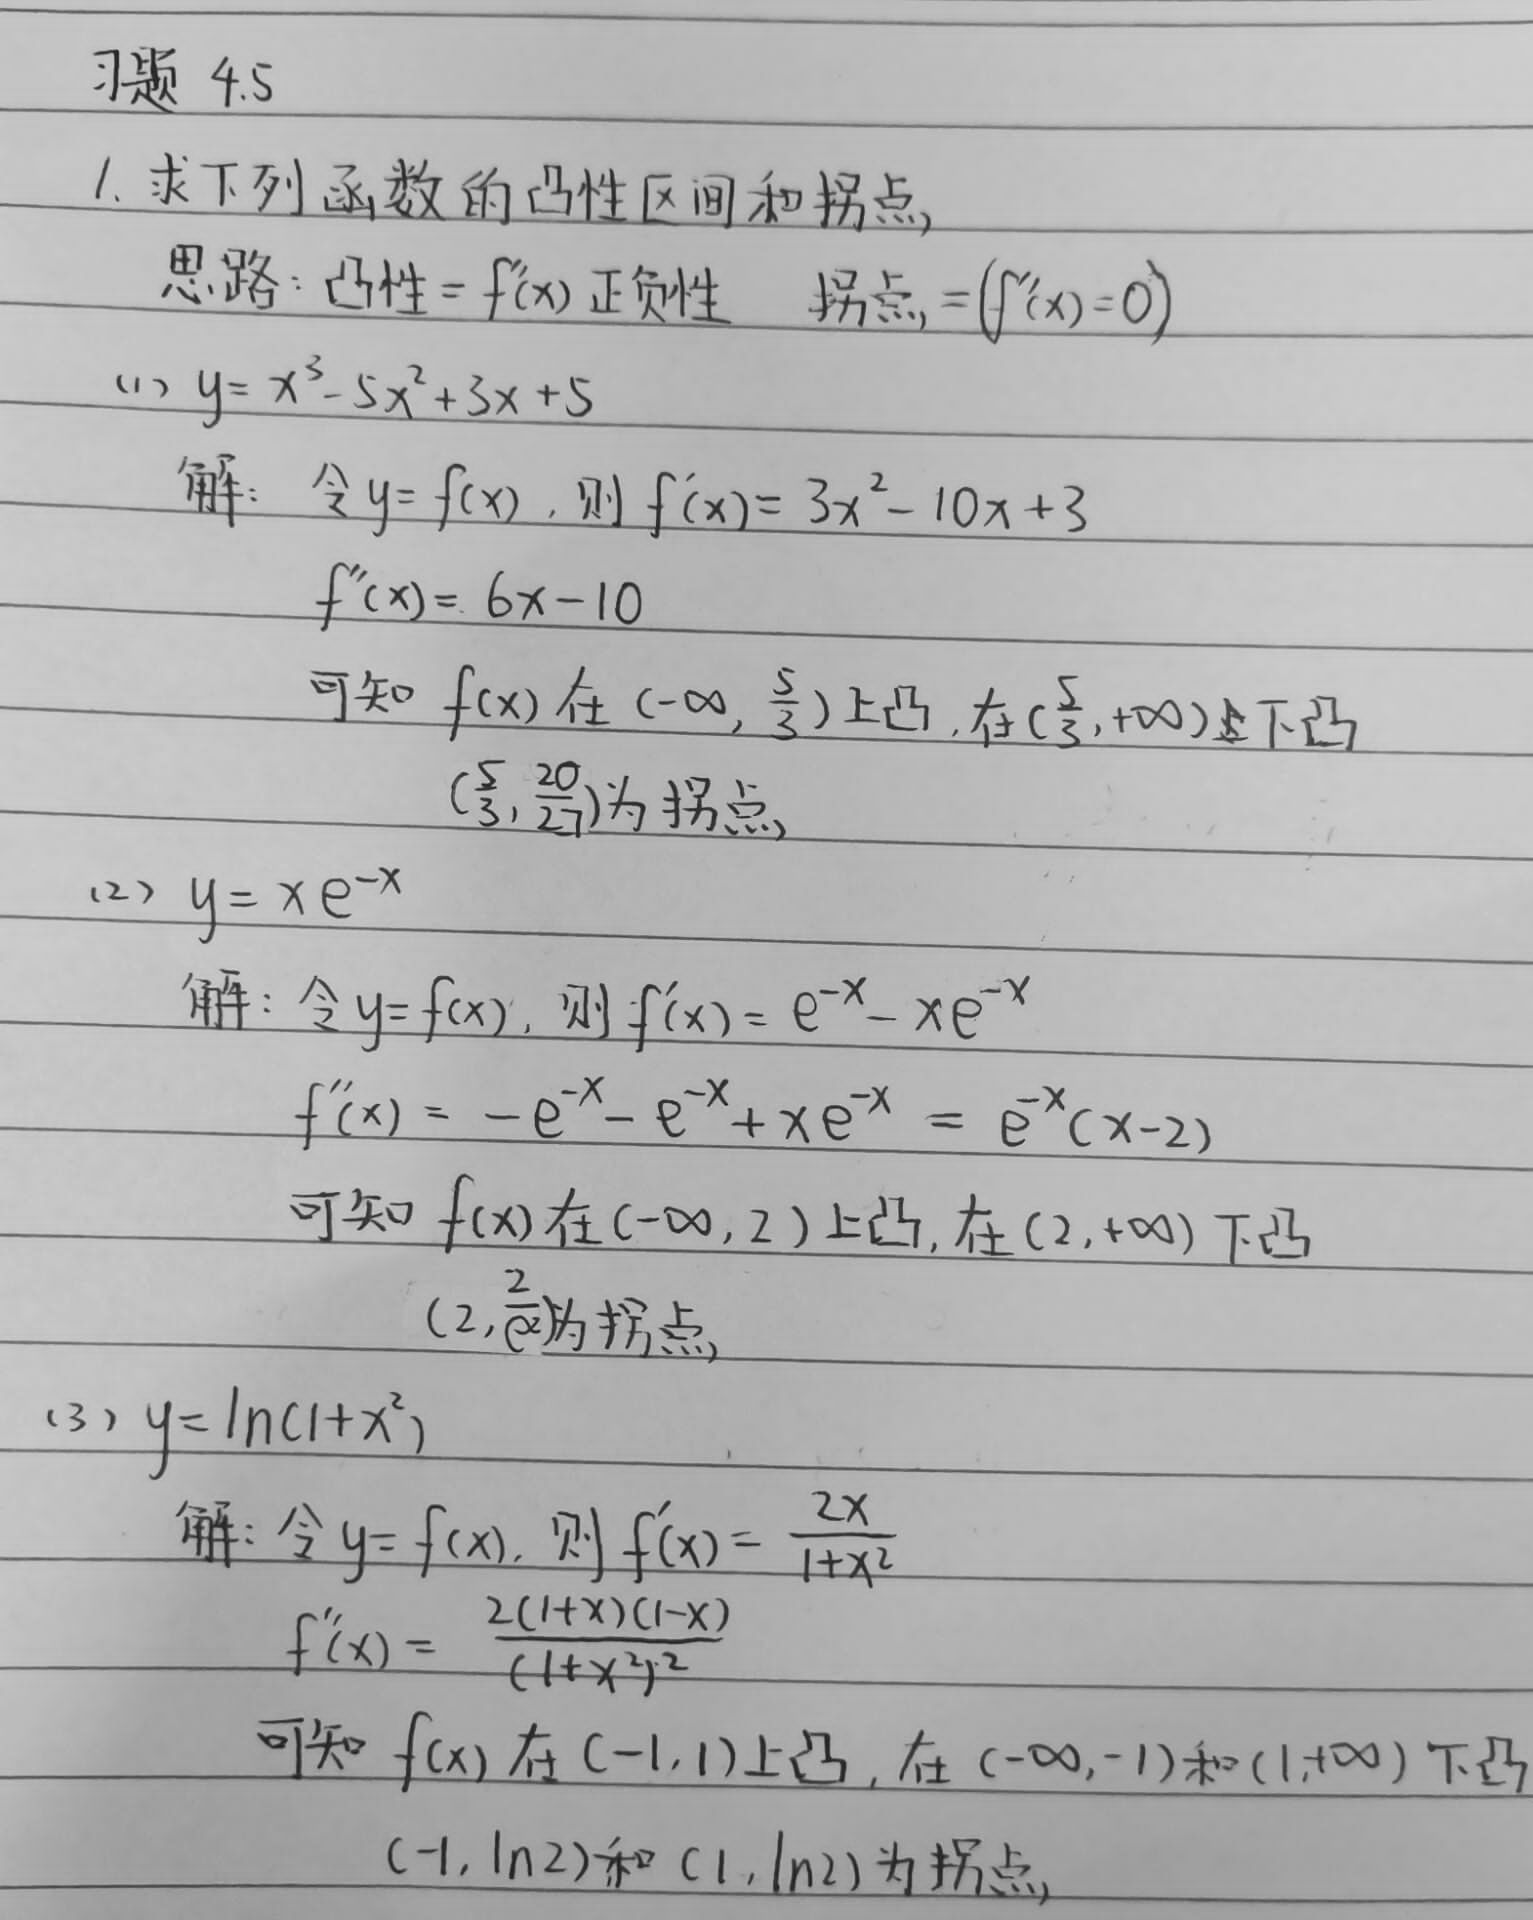 习题 4.5
1. 求下列函数的凸性区间和拐点
思路: 凸性 = f''(x) 正负性 拐点 = (f''(x) = 0)
(1) y = x³ - 5x² + 3x + 5
解: 令 y = f(x), 则 f'(x) = 3x² - 10x + 3
f''(x) = 6x - 10
可知 f(x) 在 (-∞, 5/3) 上凸, 在 (5/3, +∞) 下凸
(5/3, 20/27) 为拐点
(2) y = xe^{-x}
解: 令 y = f(x), 则 f'(x) = e^{-x} - xe^{-x}
f''(x) = -e^{-x} - e^{-x} + xe^{-x} = e^{-x}(x-2)
可知 f(x) 在 (-∞, 2) 上凸, 在 (2, +∞) 下凸
(2, 2/e²) 为拐点
(3) y = ln(1+x²)
解: 令 y = f(x), 则 f'(x) = 2x/(1+x²)
f''(x) = 2(1+x)(1-x)/(1+x²)²
可知 f(x) 在 (-1, 1) 上凸, 在 (-∞, -1) 和 (1, +∞) 下凸
(-1, ln2) 和 (1, ln2) 为拐点